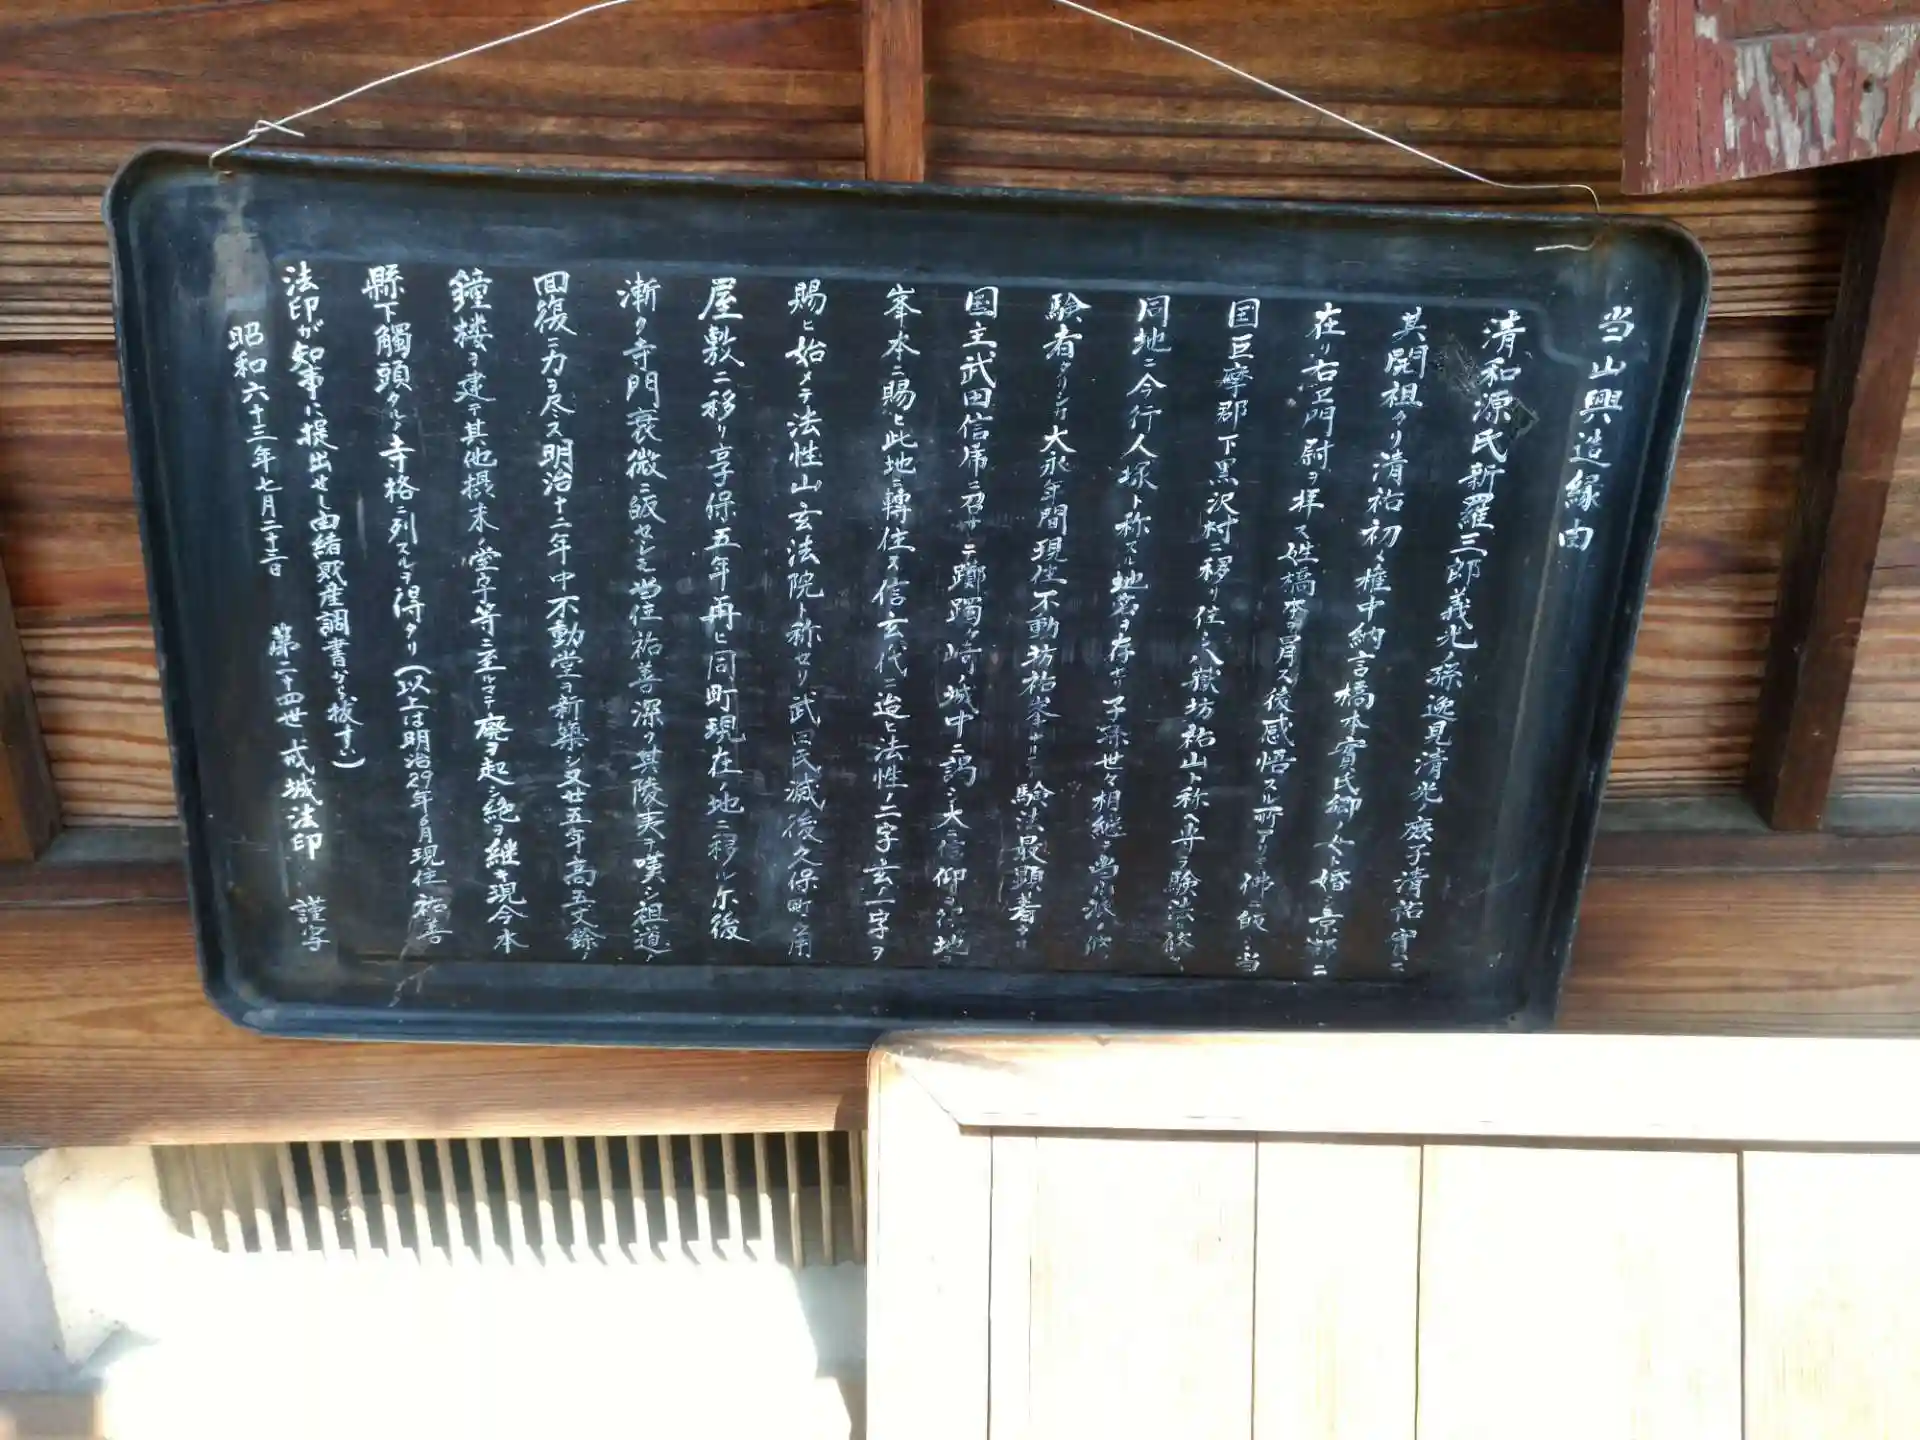 当山興造縁由
清和源氏新羅三郎義光ノ孫逸見清光ノ庶子清祐實ニ
其開祖タリ清祐初メ権中納言橋本實氏卿ノ女ト婚シ京都ニ
在リ右エ門尉ヲ拝マ姓橋本ヲ冒ス後感悟スル所アリテ佛ニ皈シ当
国巨摩郡下黒沢村ニ移リ住シ八嶽坊祐山ト称ヘ専ラ験法ヲ修ス
同地ニ今行人塚ト称スル地名ヲ存セリ子孫世々相継キ当山派ノ修
験者タリシカ大永年間現住不動坊祐峯ナリテ験法最顕著ナリ
国主武田信虎ニ召サテ躑躅ヶ崎ノ城中ニ謁シ大ニ信仰ヲ得地ヲ
峯本ニ賜ヒ此地ニ轉住ス信玄代ニ迨ヒ法性ノ二字玄ノ一字ヲ
賜ヒ始メテ法性山玄法院ト称セリ武田氏滅後久保町ノ角
屋敷ニ移リ享保五年再ヒ同町現在ノ地ニ移ル尓後
漸ク寺門衰微ニ皈セシモ当住祐善深ク其陵夷ヲ嘆シ祖道ノ
回復ニ力ヲ尽シ明治十二年中不動堂ヲ新築シ又廿五年高五丈餘ノ
鐘楼ヲ建テ其他摂末ノ堂宇等ニ至ルマテ廃ヲ起シ絶ヲ継キ現今本
縣下觸頭タルノ寺格ニ列スルヲ得タリ(以上は明治29年6月現住祐善
法印が知事に提出せし由緒財産調書から抜すい)
昭和六十三年七月二十三日 第二十四世 戒城法印 謹写